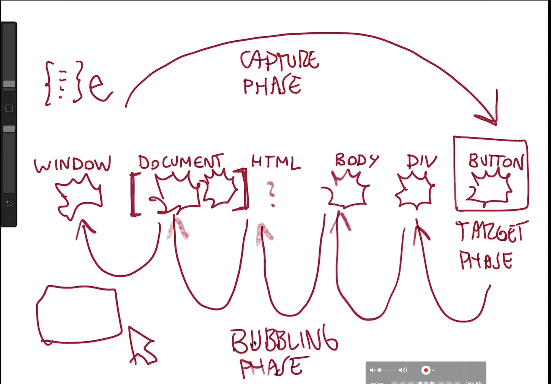 CAPTURE
PHASE
{ }e
WINDOW DOCUMENT HTML BODY DIV BUTTON
[ ] ?
TARGET
PHASE
BUBBLING
PHASE